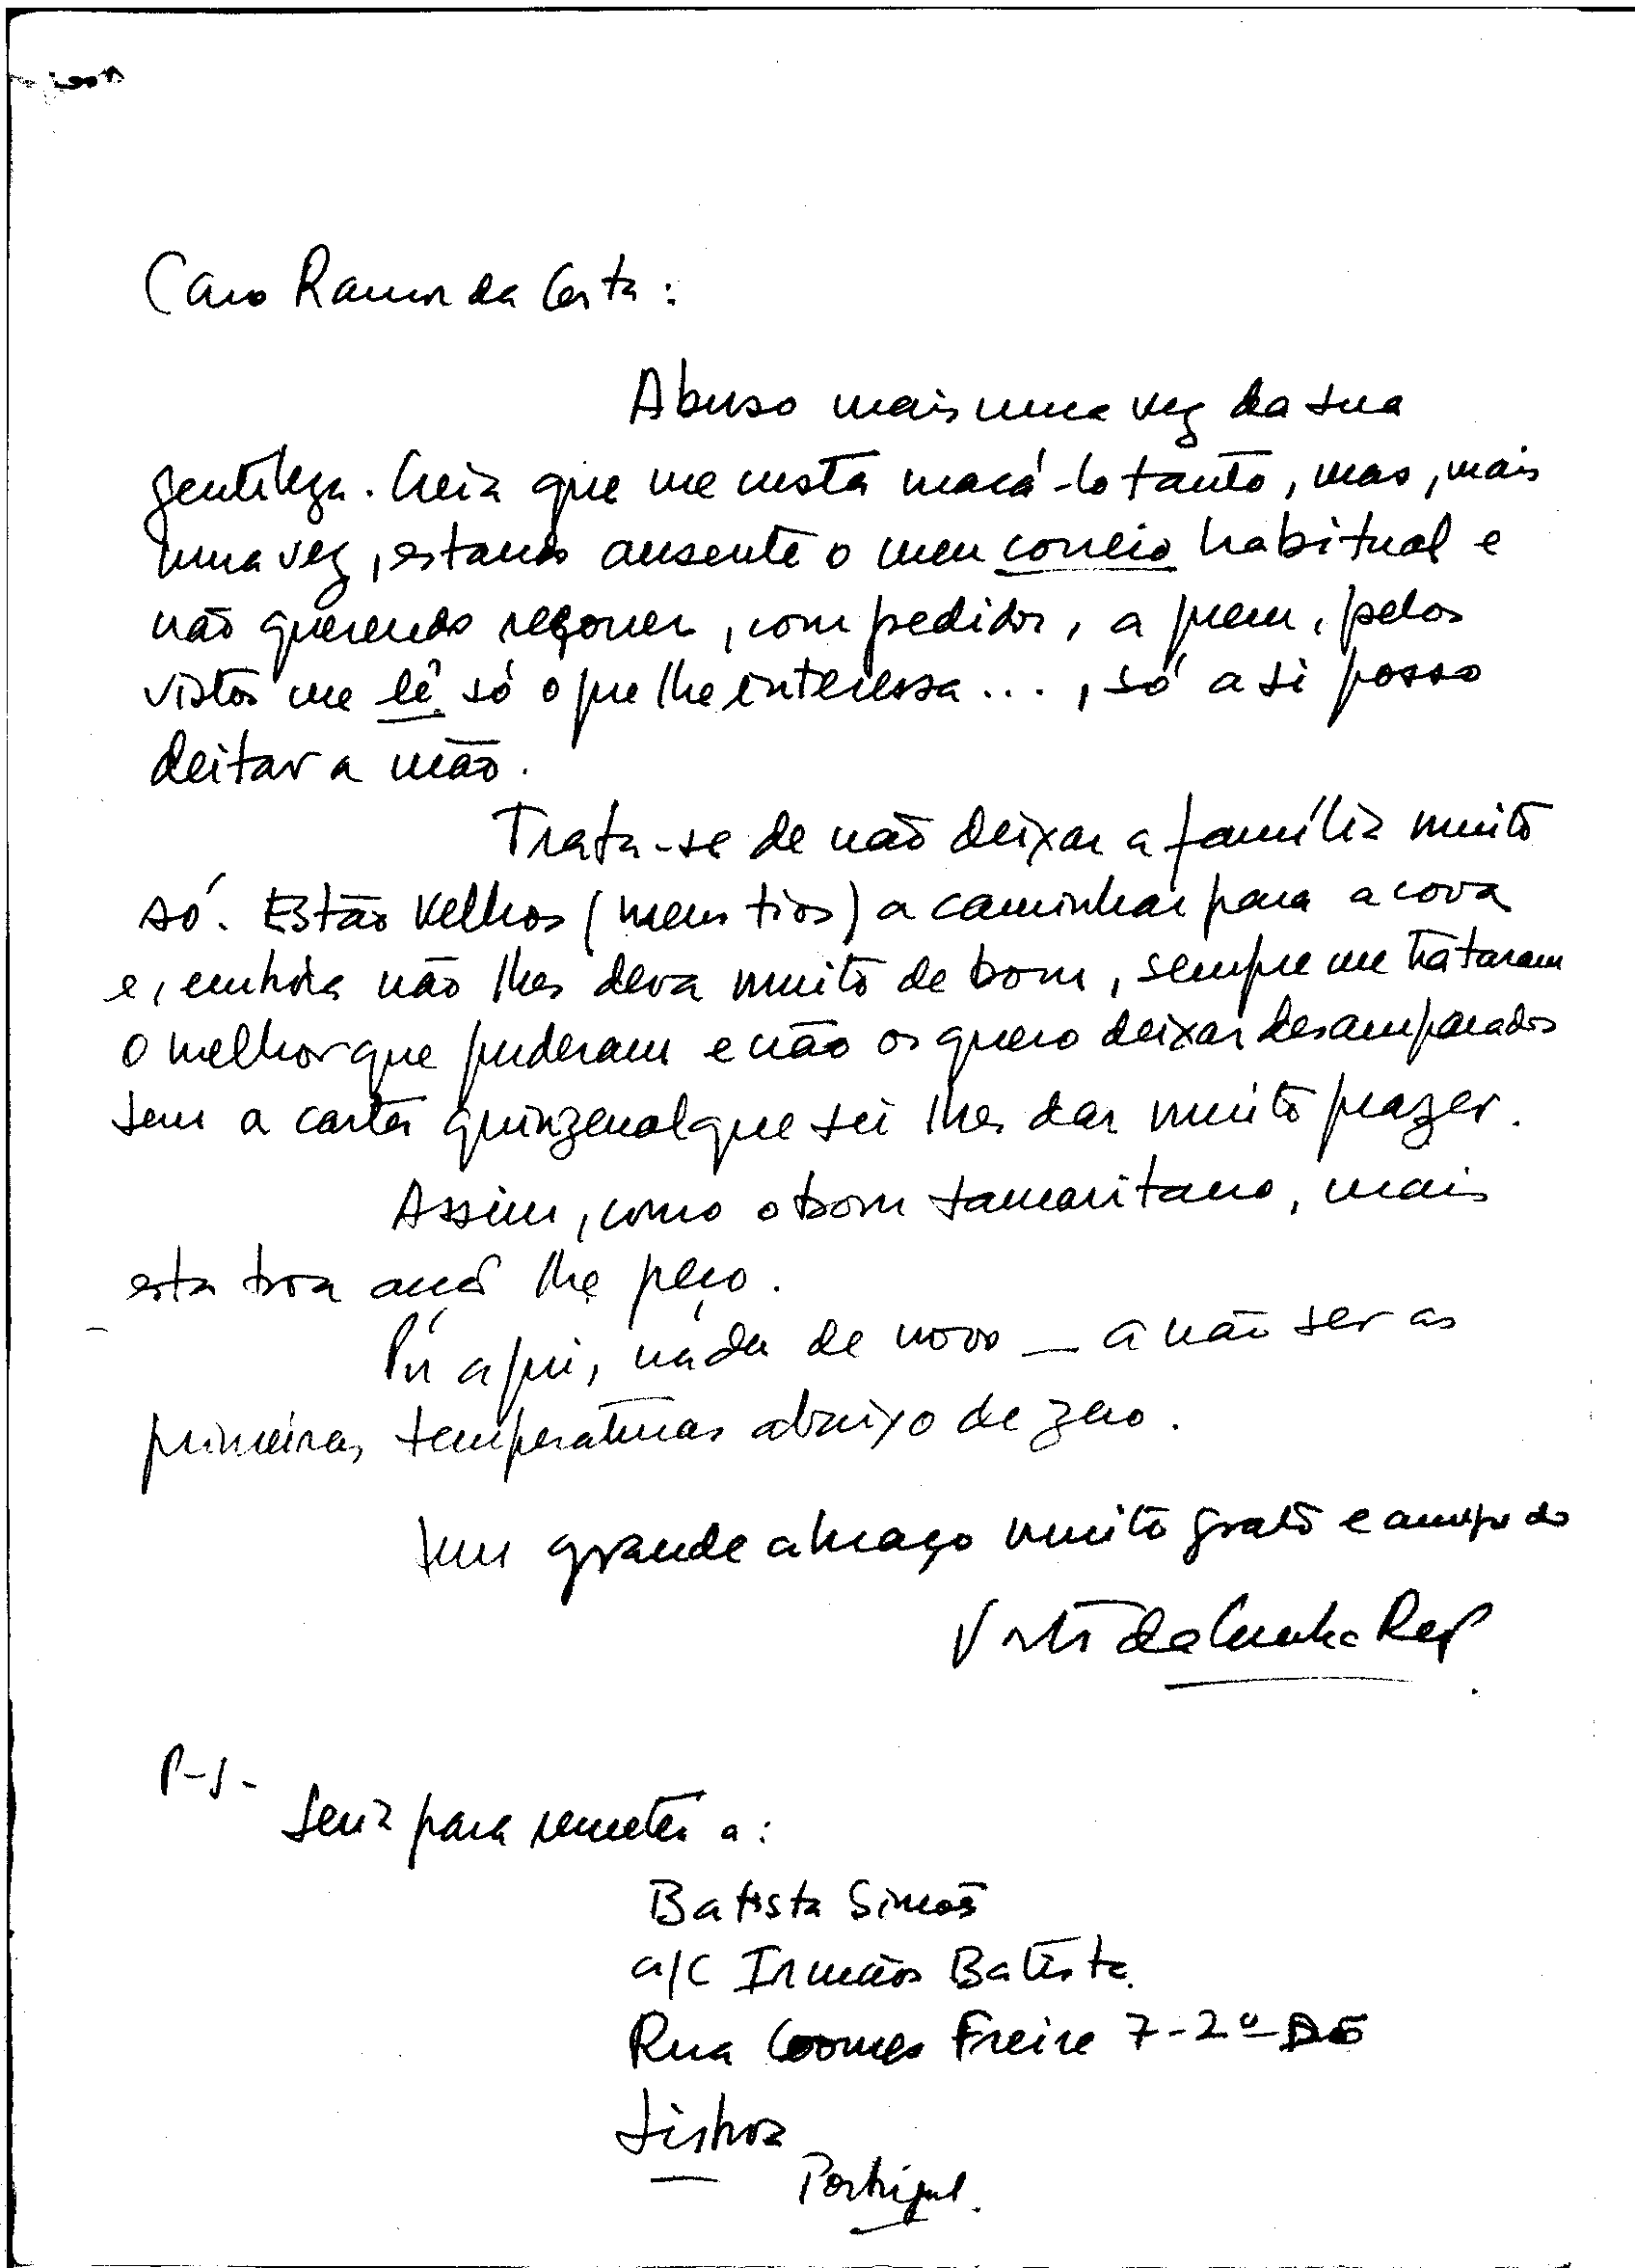 Caro Ramos da Costa:
Abuso mais uma vez da sua
gentileza. Creia que me custa maçá-lo tanto, mas, mais
uma vez, estando ausente o meu correio habitual e
não querendo recorrer, com pedidos, a quem, pelos
vistos me lê só o que lhe interessa..., só a si posso
deitar a mão.
Trata-se de não deixar a família muito
só. Estão velhos (meus tios) a caminhar para a cova
e, embora não lhes deva muito de bom, sempre me trataram
o melhor que puderam e não os quero deixar desamparados
sem a carta quinzenal que sei lhes dar muito prazer.
Assim, como o bom samaritano, mais
esta boa acção lhe peço.
Por aqui, nada de novo — a não ser as
primeiras temperaturas abaixo de zero.
Um grande abraço muito grato e amigo do
Victor da Cunha Rego
P-S-
Seria para remeter a:
Batista Simões
a/c Irmãos Batista
Rua Gomes Freire 7-2º-
Lisboa
Portugal.